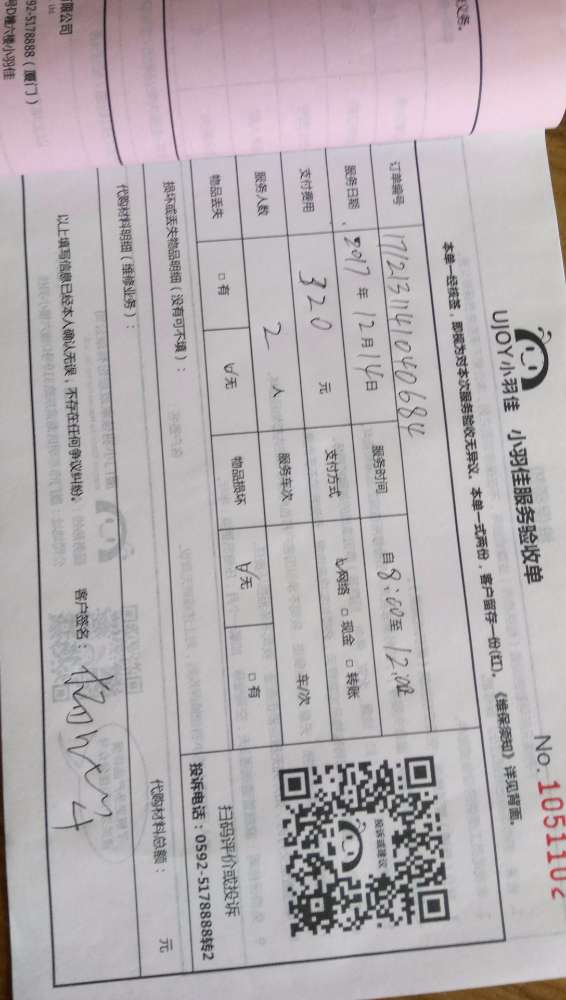 有限公司
Ltd
92-5178888（厦门）
号D幢六楼小羽佳
义务。
UJOY小羽佳 小羽佳服务验收单
No. 1051102
本单一经核签，即视为对本次服务验收无异议。本单一式两份，客户留存一份(红)。《维保须知》详见背面。
订单编号 1712131141040684
服务日期 2017年12月14日 服务时间 自8:00至12:00
支付费用 320元 支付方式 ☑网络 □现金 □转账
服务人数 2人 服务车次 车/次
物品丢失 □有 ☑无 物品损坏 ☑无 □有
投诉或建议
扫码评价或投诉
投诉电话：0592-5178888转2
损坏或丢失物品明细（没有可不填）：
代购材料明细（维修业务）： 代购材料总额： 元
以上填写信息已经本人确认无误，不存在任何争议纠纷。 客户签名：